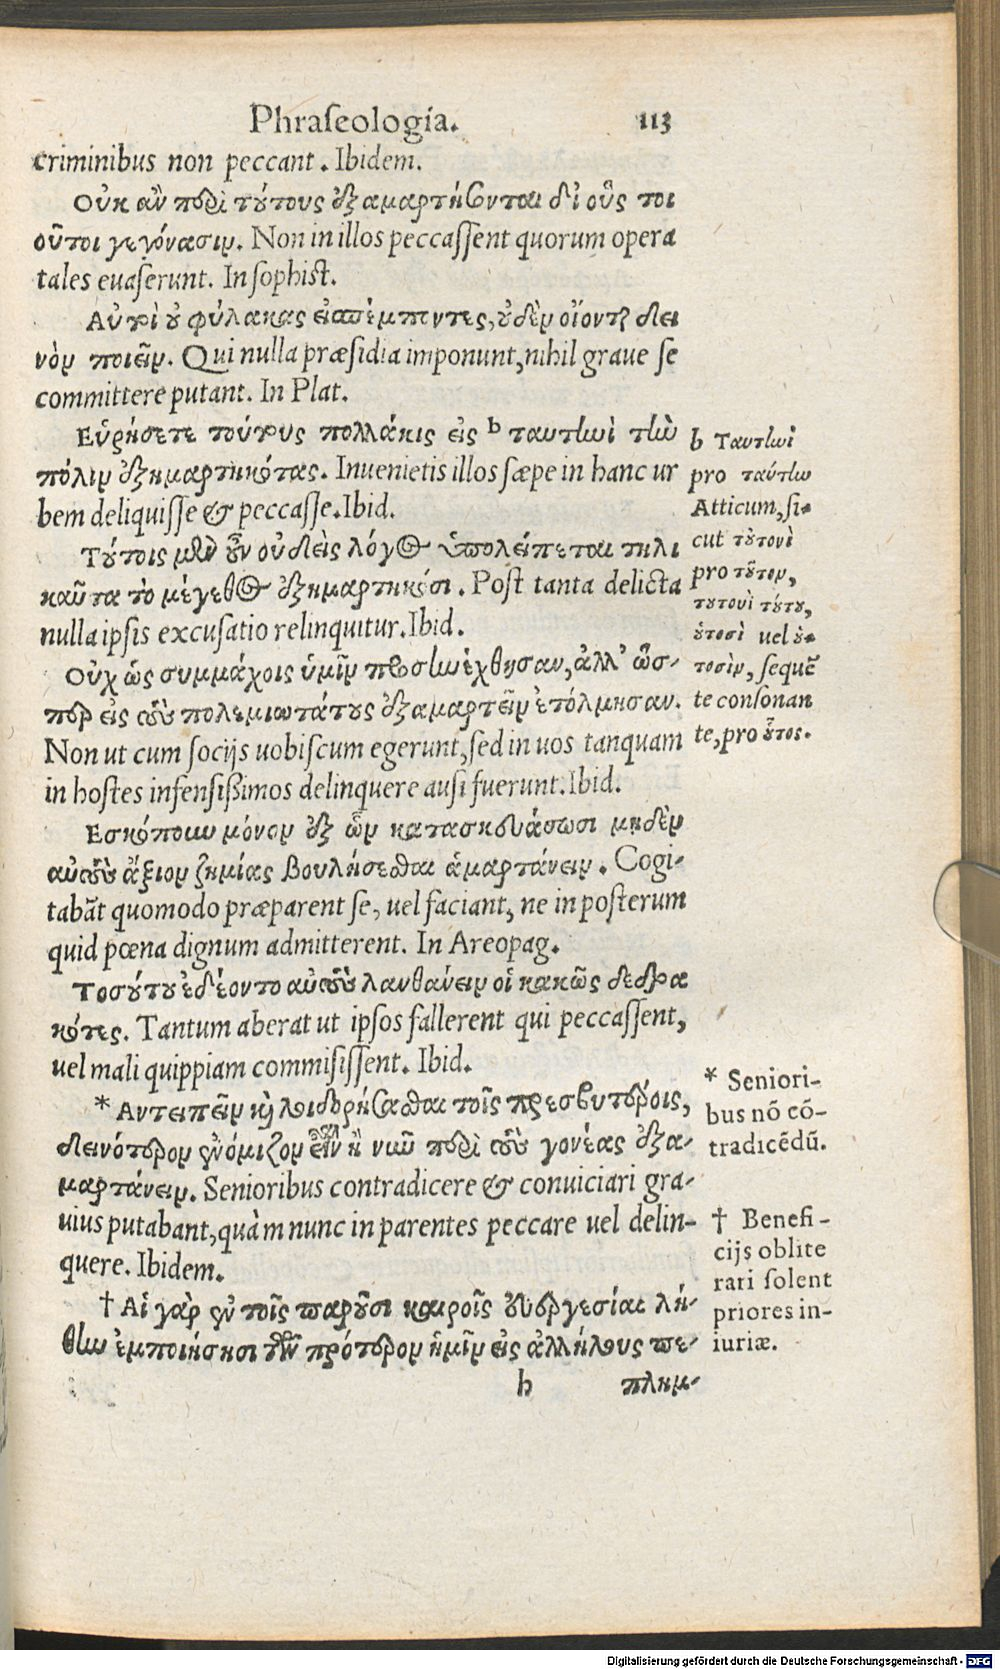 Phraſeologia. 113
criminibus non peccant. Ibidem.
Οὐκ ἂν περὶ τούτους ἐξαμαρτήσονται δἰ οὓς τοι
οῦτοι γεγόνασιν. Non in illos peccaſſent quorum opera
tales euaſerunt. In ſophist.
Αὐτοὶ οὐ φύλακας εἰσπέμποντες, οὐδὲν οἴονται δει
νὸν ποιεῖν. Qui nulla præſidia imponunt, nihil graue ſe
committere putant. In Plat.
Εὑρήσετε τούτους πολλάκις εἰς b ταυτηνὶ τὴν
πόλιν ἐξημαρτηκότας. Inuenietis illos ſæpe in hanc ur
bem deliquiſſe & peccaſſe. Ibid.
Τούτοις μὲν οὖν οὐδεὶς λόγος ὑπολείπεται τηλι
καῦτα τὸ μέγεθος ἐξημαρτηκόσι. Post tanta delicta
nulla ipſis excuſatio relinquitur. Ibid.
Οὐχ ὡς συμμάχοις ὑμῖν προσηνέχθησαν, ἀλλ' ὥσ-
περ εἰς τοὺς πολεμιωτάτους ἐξαμαρτεῖν ἐτόλμησαν.
Non ut cum ſocijs uobiſcum egerunt, ſed in uos tanquam
in hostes infenſißimos delinquere auſi fuerunt. Ibid.
Εσκόπουν μόνον ἐξ ὧν κατασκευάσωσι μηδὲν
αὐτοὺς ἄξιον ζημίας βουλήσεσθαι ἁμαρτάνειν. Cogi-
tabāt quomodo præparent ſe, uel faciant, ne in posterum
quid pœna dignum admitterent. In Areopag.
Τοσούτου ἐδέοντο αὐτοὺς λανθάνειν οἱ κακῶς δεδρα
κότες. Tantum aberat ut ipſos fallerent qui peccaſſent,
uel mali quippiam commiſiſſent. Ibid.
* Αντειπεῖν καὶ λοιδορήσασθαι τοῖς πρεσβυτέροις,
δεινότερον ἐνόμιζον εἶναι ἢ νῦν περὶ τοὺς γονέας ἐξα-
μαρτάνειν. Senioribus contradicere & conuiciari gra-
uius putabant, quàm nunc in parentes peccare uel delin-
quere. Ibidem.
† Αἱ γὰρ ἐν τοῖς παροῦσι καιροῖς εὐεργεσίαι λή-
θην ἐμποιήσουσι τῶν πρότερον ἡμῖν εἰς ἀλλήλους πε-
h πλημ-
b Ταυτηνὶ
pro ταύτην
Atticum, ſi-
cut τουτονὶ
pro τοῦτον,
τουτουὶ τούτου,
οὑτοσὶ uel οὑ-
τοσὶν, ſequē
te conſonan
te, pro οὗτος.
* Seniori-
bus nō cō-
tradicēdū.
† Benefi-
cijs oblite
rari ſolent
priores in-
iuriæ.
Digitalisierung gefördert durch die Deutsche Forschungsgemeinschaft - DFG